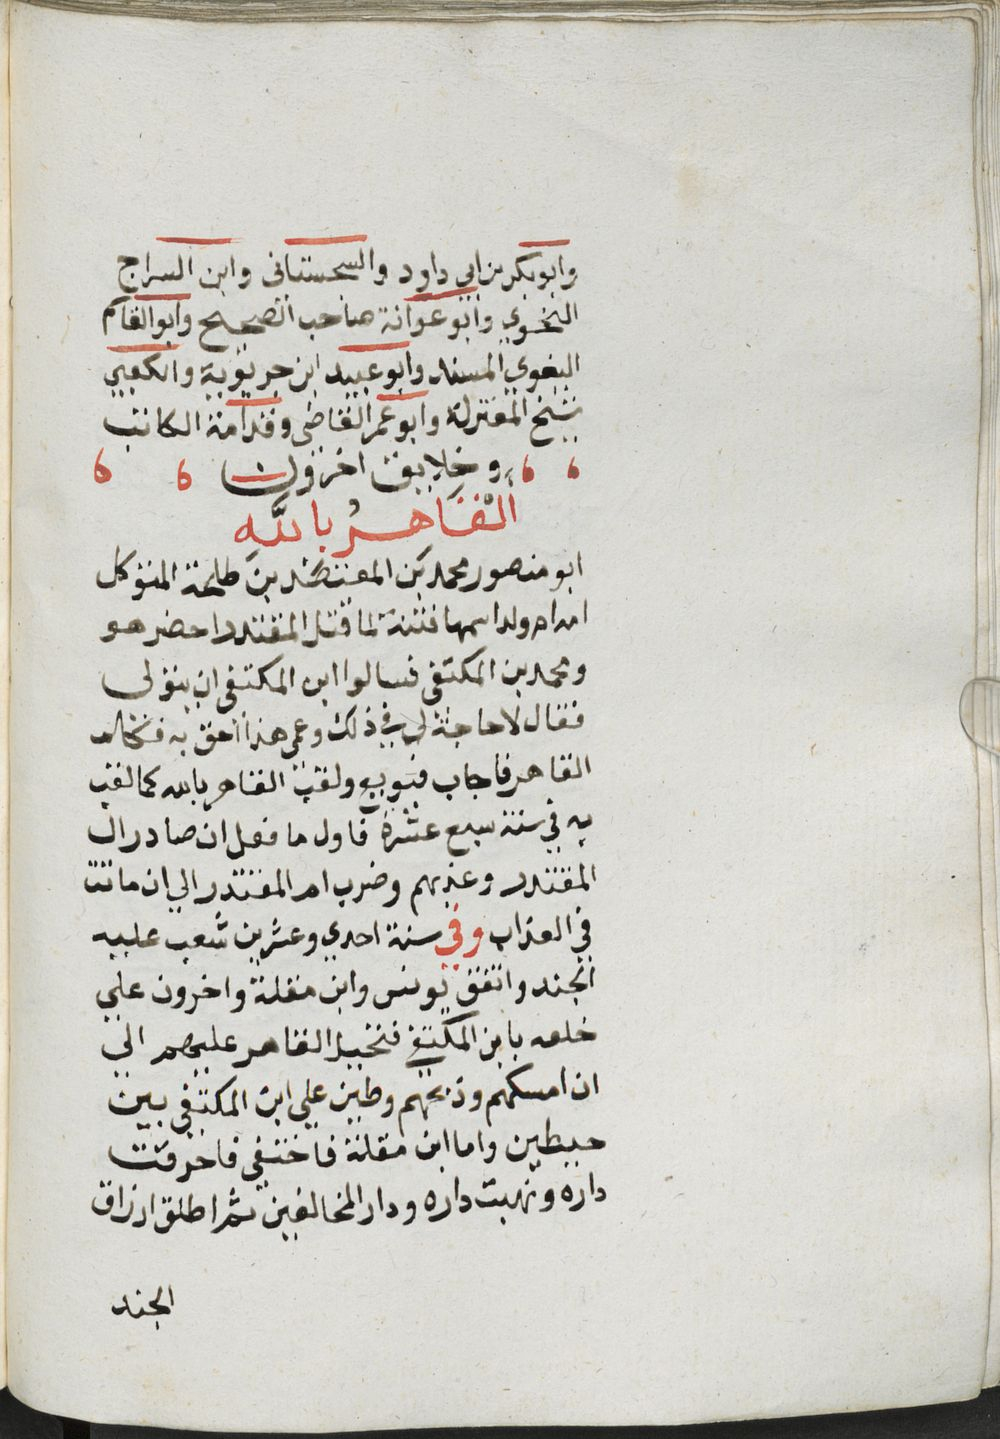 وابو بكر بن ابي داود والسجستاني وابن السراج
النحوي وابو عوانة صاحب الصحيح وابو القاسم
البغوي المسند وابو عبيد ابن حربوية والكعبي
شيخ المعتزلة وابو عمر القاضي وقدامة الكاتب
وخلايق اخرون
القاهر بالله
ابو منصور محمد بن المعتضد بن طلحة المتوكل
امه ام ولد اسمها فتنة لما قتل المقتدر احضر هو
ومحمد بن المكتفي فسالوا ابن المكتفي ان يتولى
فقال لا حاجة لي في ذلك وعمي هذا احق به فكلم
القاهر فاجاب فبويع ولقب القاهر بالله كما لقب
به في سنة سبع عشرة فاول ما فعل ان صادر ال
المقتدر وعذبهم وضرب ام المقتدر الي ان ماتت
في العذاب وفي سنة احدي وعشرين شعب عليه
الجند واتفق يونس وابن مقلة واخرون علي
خلعه بابن المكتفي فتحيل القاهر عليهم الي
ان امسكهم وذبحهم وطين علي ابن المكتفي بين
حيطين واما ابن مقلة فاختفي فاحرقت
داره ونهبت داره ودار المخالفين ثم اطلق ارزاق
الجند